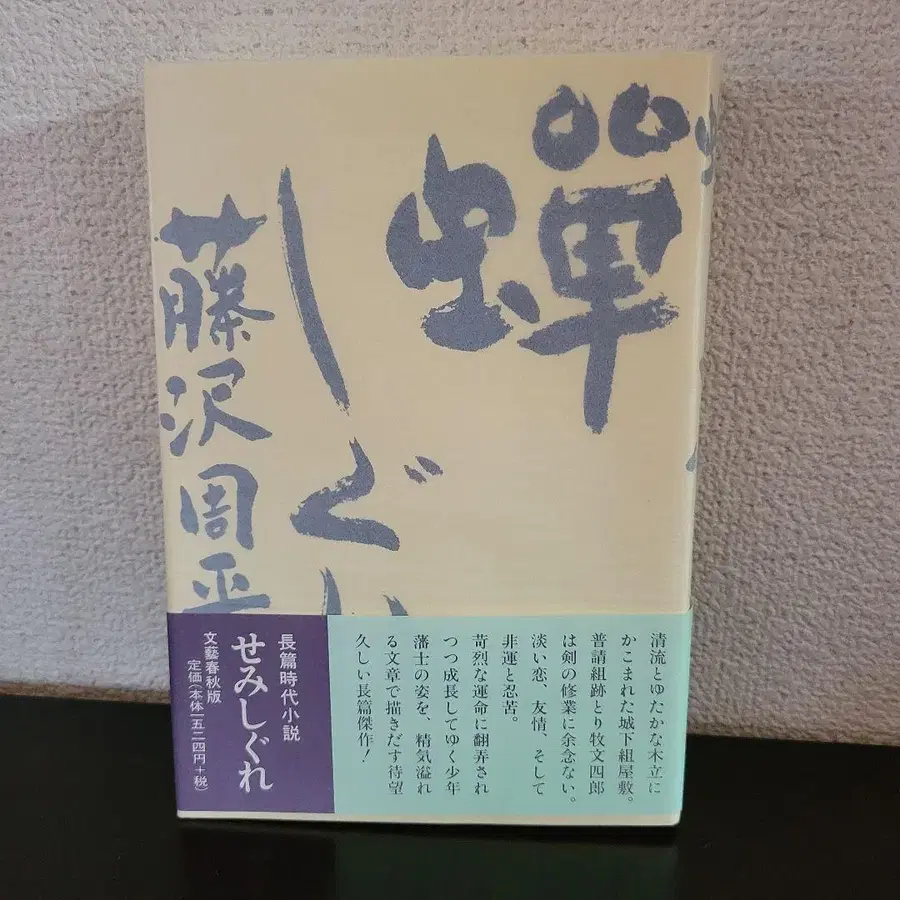 蝉しぐれ
藤沢周平
長篇時代小説
せみしぐれ
文藝春秋版
定価(本体一五二四円+税)
清流とゆたかな木立に
かこまれた城下組屋敷。
普請組跡とり牧文四郎
は剣の修業に余念ない。
淡い恋、友情、そして
非運と忍苦。
苛烈な運命に翻弄され
つつ成長してゆく少年
藩士の姿を、精気溢れ
る文章で描きだす待望
久しい長篇傑作!